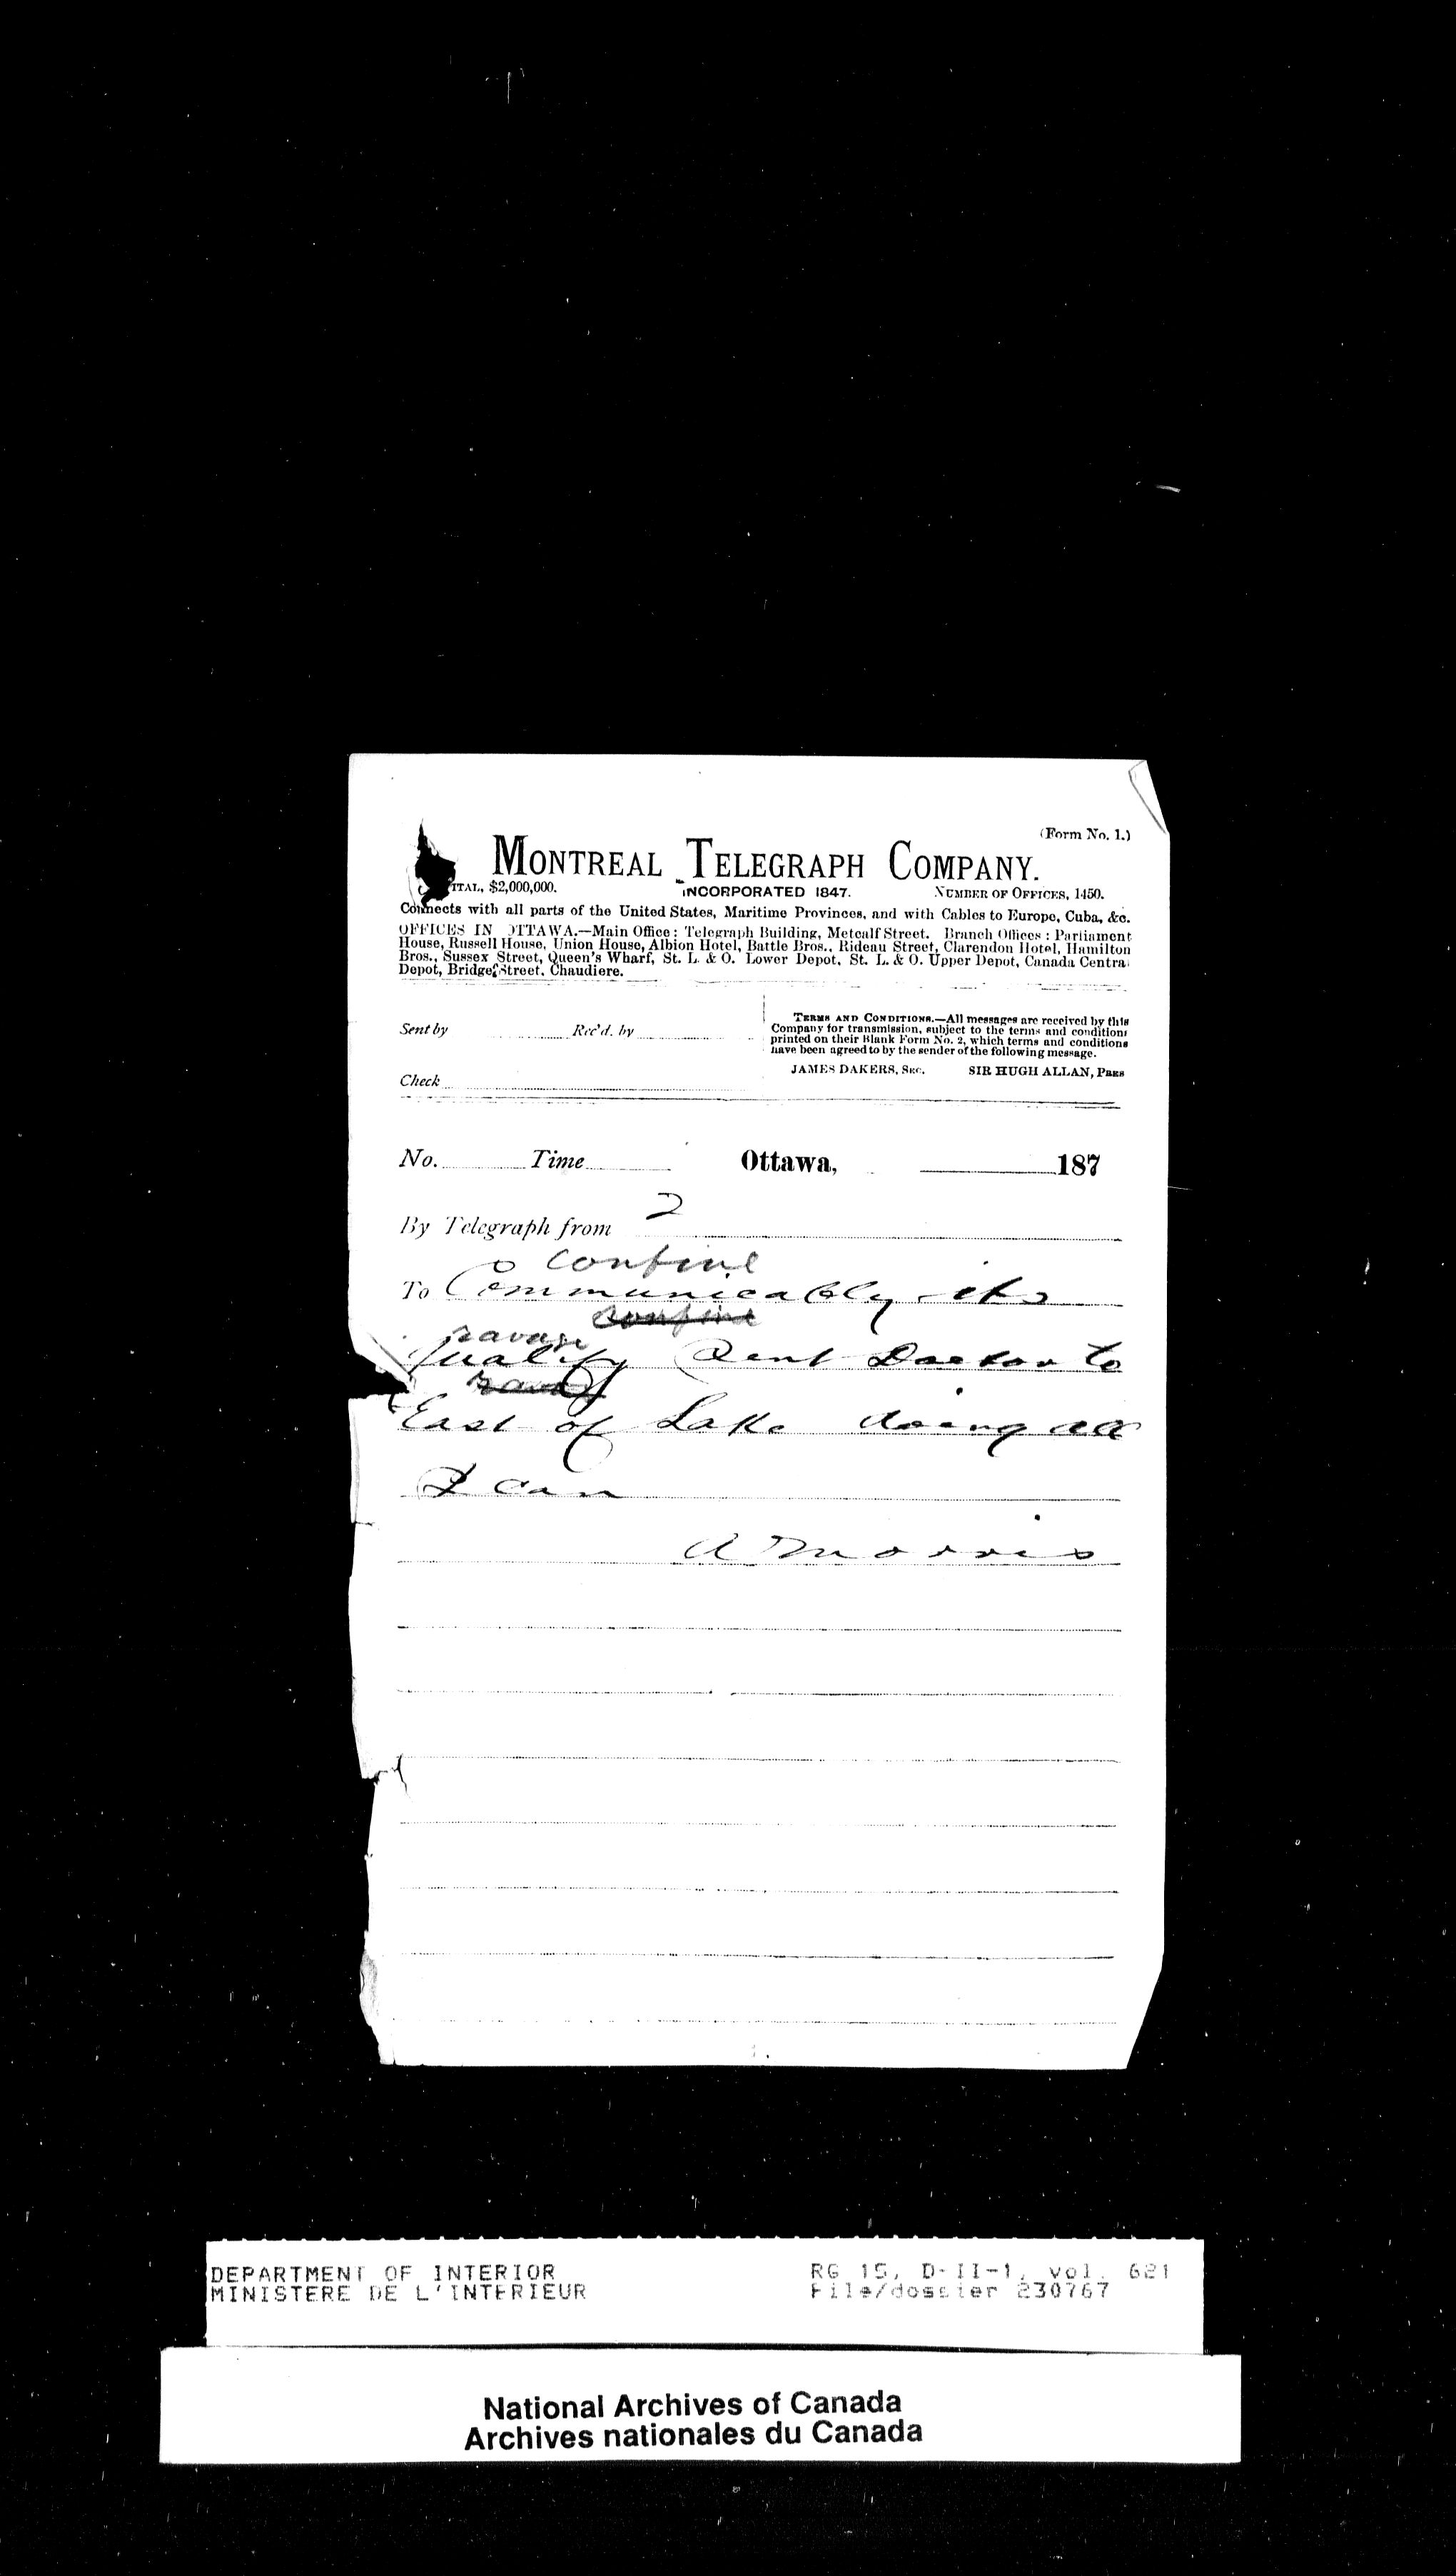 (Form No. 1.)
MONTREAL TELEGRAPH COMPANY.
ITAL, $2,000,000. INCORPORATED 1847. NUMBER OF OFFICES, 1450.
Connects with all parts of the United States, Maritime Provinces, and with Cables to Europe, Cuba, &c.
OFFICES IN OTTAWA.—Main Office: Telegraph Building, Metcalf Street. Branch Offices: Parliament
House, Russell House, Union House, Albion Hotel, Battle Bros., Rideau Street, Clarendon Hotel, Hamilton
Bros., Sussex Street, Queen's Wharf, St. L. & O. Lower Depot, St. L. & O. Upper Depot, Canada Central
Depot, Bridge Street, Chaudiere.
Sent by Rec'd. by
Check
TERMS AND CONDITIONS.—All messages are received by this
Company for transmission, subject to the terms and conditions
printed on their Blank Form No. 2, which terms and conditions
have been agreed to by the sender of the following message.
JAMES DAKERS, SEC. SIR HUGH ALLAN, PRES
No. Time Ottawa, 187
2
By Telegraph from
confine
To Communicably its
confine
ravage
qualify Sent Doctor to
ravage
East of Lake doing all
I can
A Morris
DEPARTMENT OF INTERIOR RG 15, D-II-1, vol. 621
MINISTERE DE L'INTERIEUR File/dossier 230767
National Archives of Canada
Archives nationales du Canada